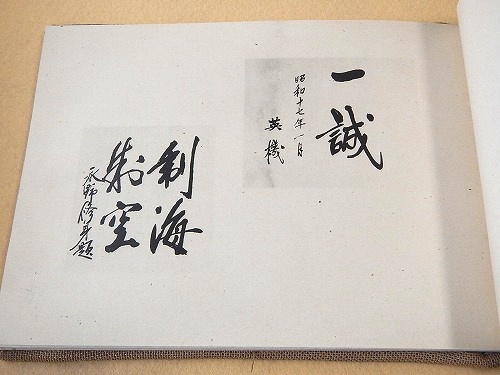 一誠
昭和十七年一月
英機
制海
制空
永野修身題